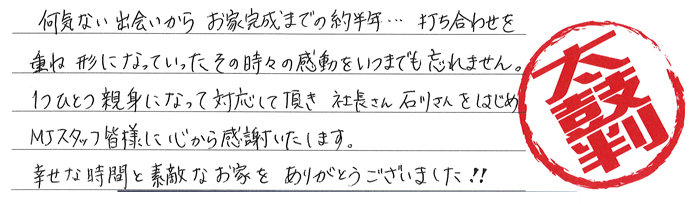 何気ない出会いから お家完成までの約半年… 打ち合わせを
重ね 形になっていったその時々の感動をいつまでも忘れません。
1つひとつ親身になって対応して頂き 社長さん 石川さんをはじめ
MJスタッフ皆様に心から感謝いたします。
幸せな時間と素敵なお家を ありがとうございました!!
太鼓判